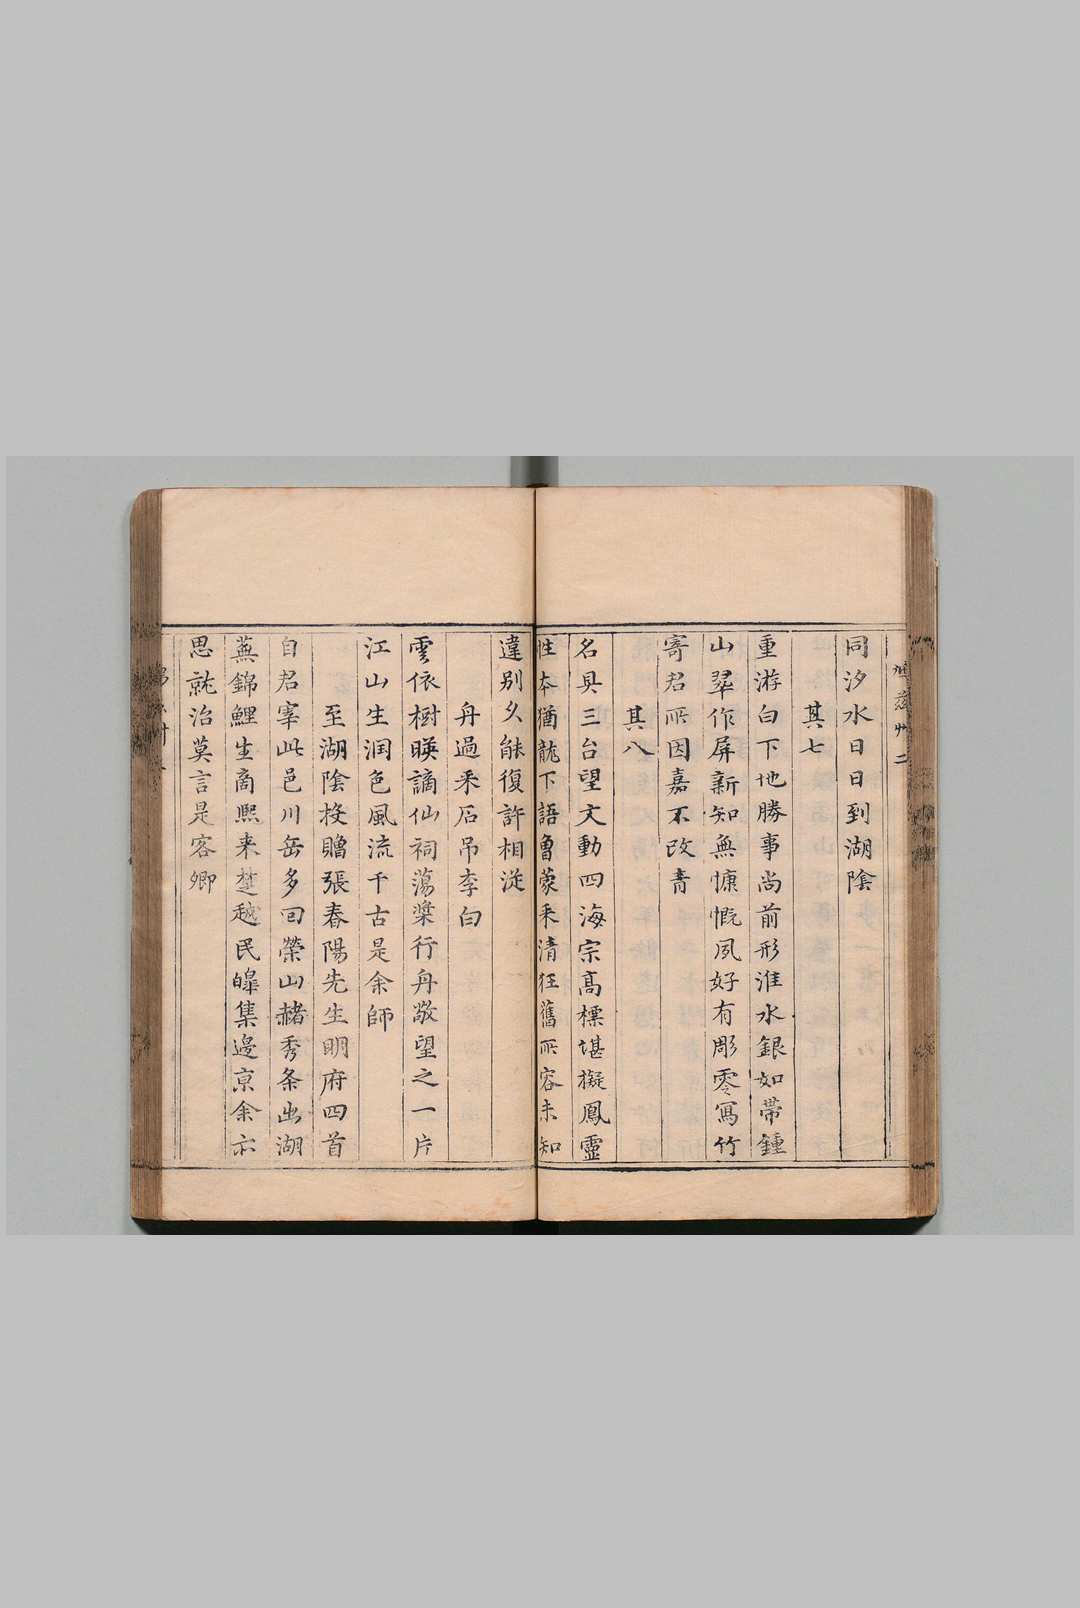 同汐水日日到湖陰
其七
重游白下地勝事尚前形淮水銀如帶鍾
山翠作屏新知無慷慨夙好有彫零寫竹
寄君所因嘉不改青
其八
名具三台望文動四海宗高標堪擬鳳靈
性本猶龍下語魯蒙采清狂舊所容未知
違别久能復許相從
舟過采石吊李白
雲依樹暎謫仙祠蕩槳行舟敬望之一片
江山生润色風流千古是余師
至湖陰投贈張春陽先生明府四首
自君宰此邑川岳多回榮山赭秀条出湖
蕪錦鯉生啇熙来楚越民皥集邊亰余亦
思就治莫言是客卿